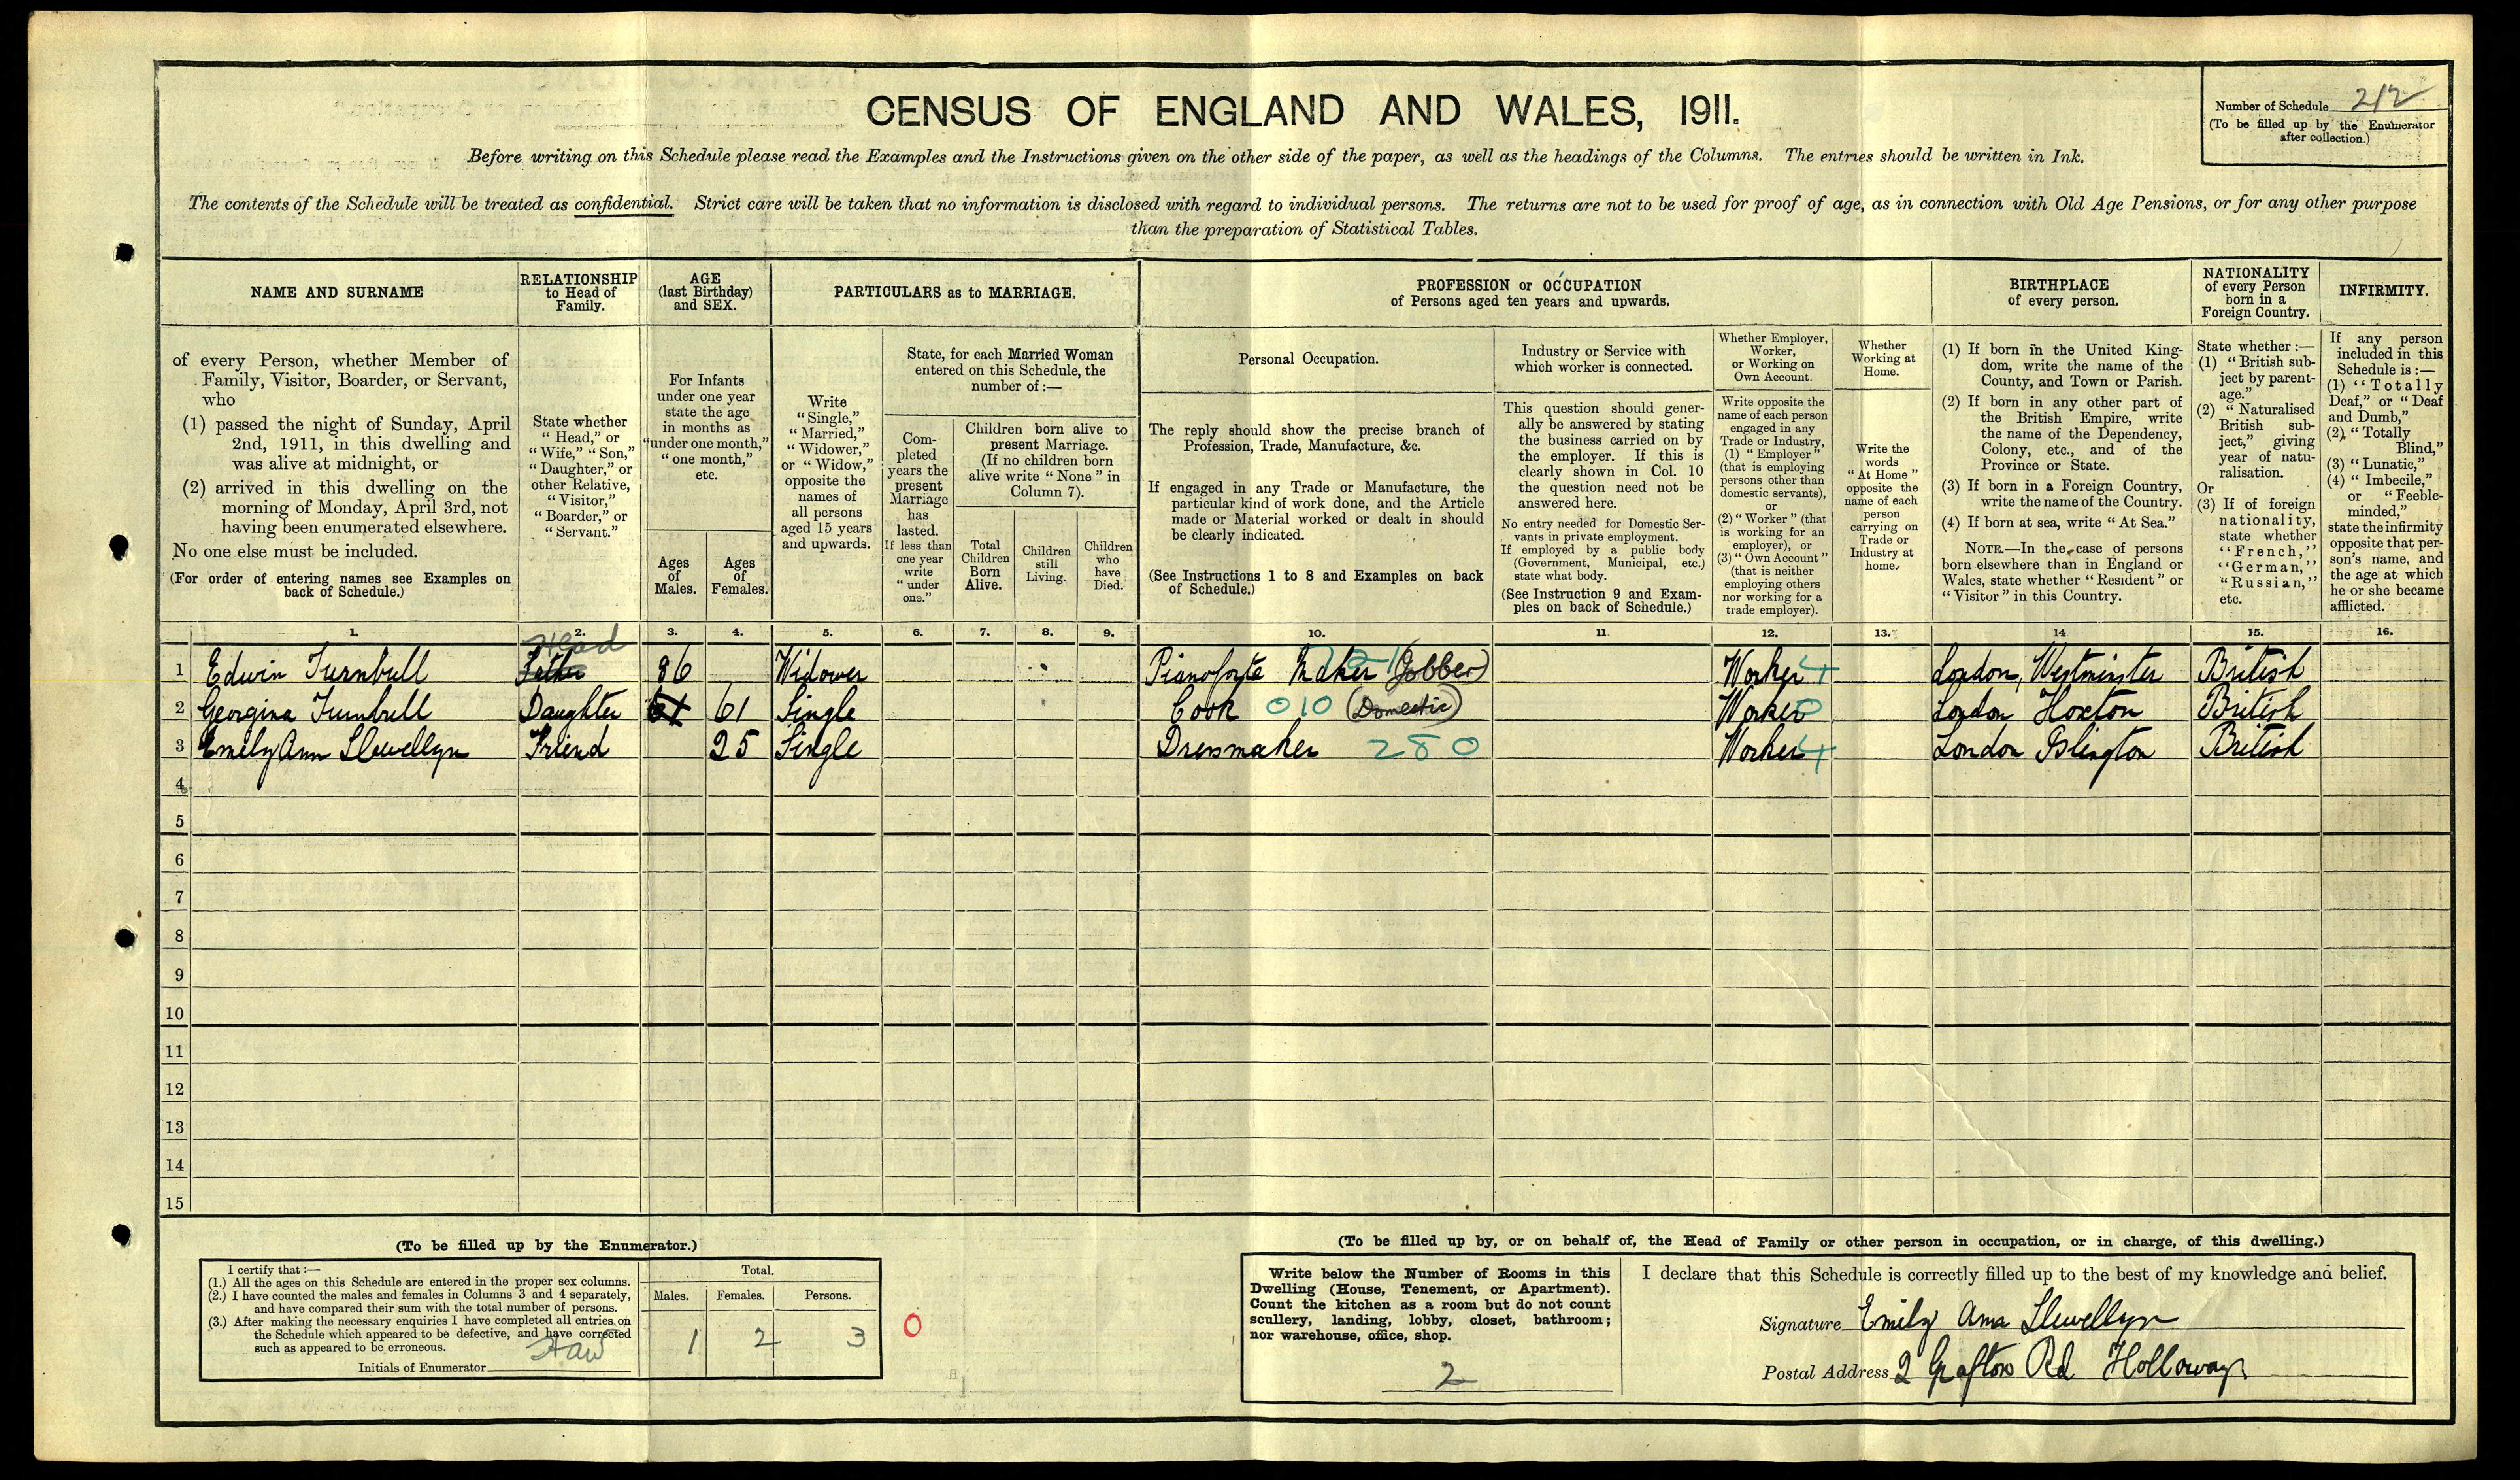 CENSUS OF ENGLAND AND WALES, 1911.
Number of Schedule 212
(To be filled up by the Enumerator
after collection.)
Before writing on this Schedule please read the Examples and the Instructions given on the other side of the paper, as well as the headings of the Columns. The entries should be written in Ink.
The contents of the Schedule will be treated as confidential. Strict care will be taken that no information is disclosed with regard to individual persons. The returns are not to be used for proof of age, as in connection with Old Age Pensions, or for any other purpose
than the preparation of Statistical Tables.
NAME AND SURNAME
of every Person, whether Member of
Family, Visitor, Boarder, or Servant,
who
(1) passed the night of Sunday, April
2nd, 1911, in this dwelling and
was alive at midnight, or
(2) arrived in this dwelling on the
morning of Monday, April 3rd, not
having been enumerated elsewhere.
No one else must be included.
(For order of entering names see Examples on
back of Schedule.)
RELATIONSHIP
to Head of
Family.
State whether
"Head," or
"Wife," "Son,"
"Daughter," or
other Relative,
"Visitor,"
"Boarder," or
"Servant."
AGE
(last Birthday)
and SEX.
For Infants
under one year
state the age
in months as
"under one month,"
"one month,"
etc.
Ages
of
Males.
Ages
of
Females.
PARTICULARS as to MARRIAGE.
Write
"Single,"
"Married,"
"Widower,"
or "Widow,"
opposite the
names of
all persons
aged 15 years
and upwards.
State, for each Married Woman
entered on this Schedule, the
number of:—
Com-
pleted
years the
present
Marriage
has
lasted.
If less than
one year
write
"under
one."
Children born alive to
present Marriage.
(If no children born
alive write "None" in
Column 7).
Total
Children
Born
Alive.
Children
still
Living.
Children
who
have
Died.
PROFESSION or OCCUPATION
of Persons aged ten years and upwards.
Personal Occupation.
The reply should show the precise branch of
Profession, Trade, Manufacture, &c.
If engaged in any Trade or Manufacture, the
particular kind of work done, and the Article
made or Material worked or dealt in should
be clearly indicated.
(See Instructions 1 to 8 and Examples on back
of Schedule.)
Industry or Service with
which worker is connected.
This question should gener-
ally be answered by stating
the business carried on by
the employer. If this is
clearly shown in Col. 10
the question need not be
answered here.
No entry needed for Domestic Ser-
vants in private employment.
If employed by a public body
(Government, Municipal, etc.)
state what body.
(See Instruction 9 and Exam-
ples on back of Schedule.)
Whether Employer,
Worker,
or Working on
Own Account.
Write opposite the
name of each person
engaged in any
Trade or Industry,
(1) "Employer"
(that is employing
persons other than
domestic servants),
or
(2) "Worker" (that
is working for an
employer), or
(3) "Own Account"
(that is neither
employing others
nor working for a
trade employer).
Whether
Working at
Home.
Write the
words
"At Home"
opposite the
name of each
person
carrying on
Trade or
Industry at
home.
BIRTHPLACE
of every person.
(1) If born in the United King-
dom, write the name of the
County, and Town or Parish.
(2) If born in any other part of
the British Empire, write
the name of the Dependency,
Colony, etc., and of the
Province or State.
(3) If born in a Foreign Country,
write the name of the Country.
(4) If born at sea, write "At Sea."
NOTE.—In the case of persons
born elsewhere than in England or
Wales, state whether "Resident" or
"Visitor" in this Country.
NATIONALITY
of every Person
born in a
Foreign Country.
State whether:—
(1) "British sub-
ject by parent-
age."
(2) "Naturalised
British sub-
ject," giving
year of natu-
ralisation.
Or
(3) If of foreign
nationality,
state whether
"French,"
"German,"
"Russian,"
etc.
INFIRMITY.
If any person
included in this
Schedule is:—
(1) "Totally
Deaf," or "Deaf
and Dumb,"
(2) "Totally
Blind,"
(3) "Lunatic,"
(4) "Imbecile,"
or "Feeble-
minded,"
state the infirmity
opposite that per-
son's name, and
the age at which
he or she became
afflicted.
1. 2. 3. 4. 5. 6. 7. 8. 9. 10. 11. 12. 13. 14 15. 16.
Head
1 Edwin Turnbull Father 86 Widower Pianoforte Maker (Jobber) Worker 4 London, Westminster British
2 Georgina Turnbull Daughter 61 61 Single Cook 010 (Domestic) Worker 0 London Hoxton British
3 Emily Ann Llewellyn Friend 25 Single Dressmaker 280 Worker 4 London Islington British
4
5
6
7
8
9
10
11
12
13
14
15
(To be filled up by the Enumerator.)
I certify that:—
(1.) All the ages on this Schedule are entered in the proper sex columns.
(2.) I have counted the males and females in Columns 3 and 4 separately,
and have compared their sum with the total number of persons.
(3.) After making the necessary enquiries I have completed all entries on
the Schedule which appeared to be defective, and have corrected
such as appeared to be erroneous.
Initials of Enumerator
Total.
Males. Females. Persons.
1 2 3
0
(To be filled up by, or on behalf of, the Head of Family or other person in occupation, or in charge, of this dwelling.)
Write below the Number of Rooms in this
Dwelling (House, Tenement, or Apartment).
Count the kitchen as a room but do not count
scullery, landing, lobby, closet, bathroom;
nor warehouse, office, shop.
2
I declare that this Schedule is correctly filled up to the best of my knowledge and belief.
Signature Emily Ann Llewellyn
Postal Address 2 Grafton Rd Holloway